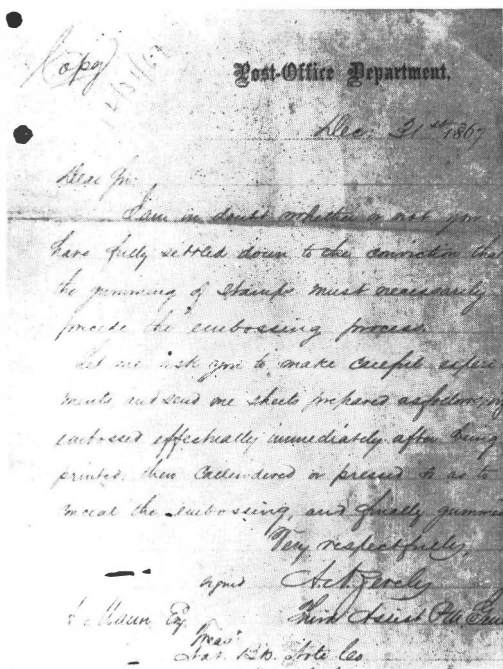 Copy
12/31/67
Post-Office Department,
Dec. 31st 1867
Dear Sir:
I am in doubt whether or not you
have fully settled down to the conviction that
the gumming of stamps must necessarily
precede the embossing process.
Let me ask you to make careful experi
ments and send me sheets prepared as follows,
embossed effectually immediately after being
printed, then callendered or pressed so as to
conceal the embossing, and finally gummed
Very respectfully,
signed
Third Assist P.M. Genl
Esq.
Treas.
Nat. Bk. Note Co